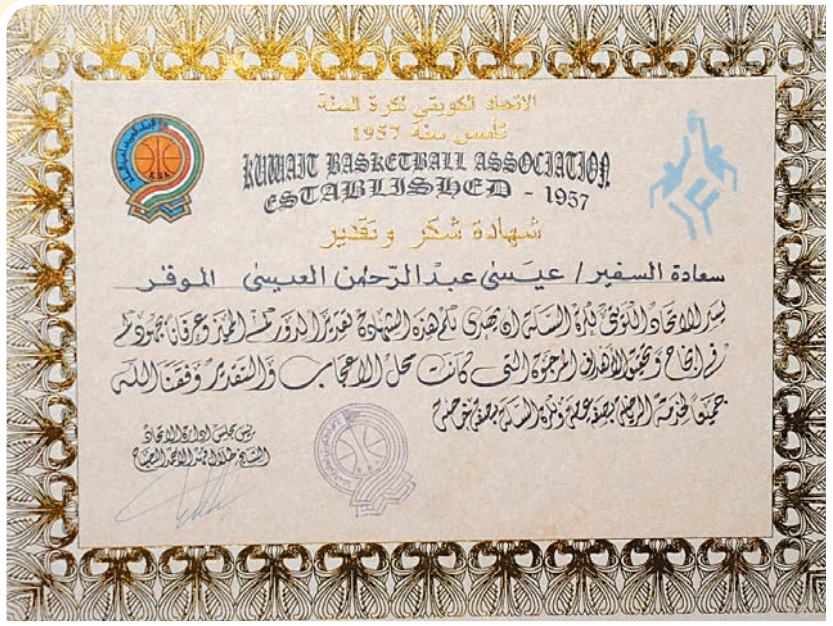 الاتحاد الكويتي لكرة السلة
تأسس سنة 1957
KUWAIT BASKETBALL ASSOCIATION
ESTABLISHED - 1957
شهادة شكر وتقدير
سعادة السفير / عيسى عبد الرّحمٰن العيسى الموقر
يسر الاتحاد الكويتي لكرة السلة ان يهدي لكم هذه الشهادة تقديراً لدوركم المميز وعرفاناً بجهودكم
في انجاح وتحقيق الأهداف المرجوة التي كانت محل الاعجاب والتقدير وفقنا الله
جميعاً لخدمة الرياضة بصفة عامة وكرة السلة بصفة خاصة
رئيس مجلس ادارة الاتحاد
الشيخ طلال فهد الاحمد الصباح